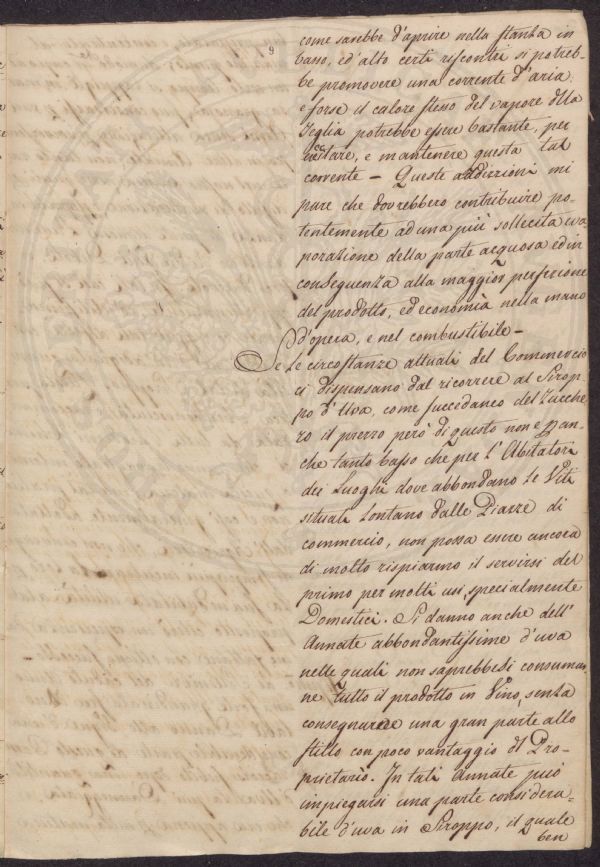 9
come sarebbe d'aprire nella stanza in
basso, ed'alto certi riscontri si potreb-
be promovere una corrente d'aria,
e forse il calore stesso del vapore della
Teglia potrebbe essere bastante, per
eccitare, e mantenere questa tal
corrente – Queste addizioni mi
pare che dovrebbero contribuire po-
tentemente ad una più sollecita eva
porazione della parte acquosa ed in
conseguenza alla maggior perfezione
del prodotto, ed economia nella mano
d'opera, e nel combustibile –
Se Le circostanze attuali del Commercio
ci dispensano dal ricorrere al Sirop-
po d'Uva, come succedaneo del Zucche
ro il prezzo però di questo non è gran-
che tanto basso che per l'Abitatori
dei Luoghi dove abbondano le Viti
situati lontano dalle Piazze di
commercio, non possa essere ancora
di molto risparmio il servirsi del
primo per molti usi, specialmente
Domestici. Si danno anche dell'
Annate abbondantissime d'uva
nelle quali non saprebbesi consumar
ne tutto il prodotto in Vino, senza
consegnarne una gran parte allo
stillo con poco vantaggio del Pro-
prietario. In tali Annate può
impiegarsi una parte considera-
bile d'uva in Siroppo, il quale
ben